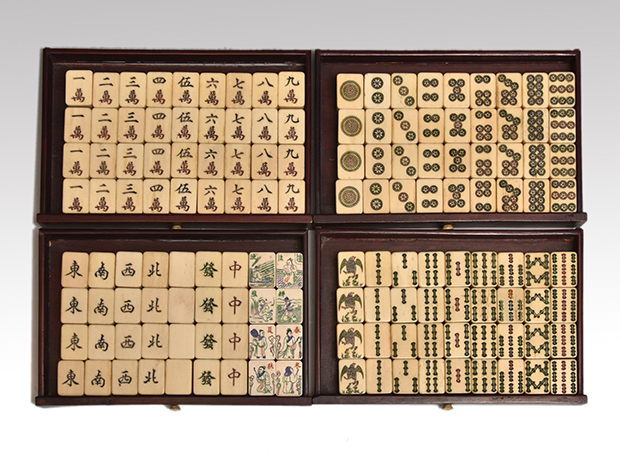 一 二 三 四 伍 六 七 八 九
萬 萬 萬 萬 萬 萬 萬 萬 萬
一 二 三 四 伍 六 七 八 九
萬 萬 萬 萬 萬 萬 萬 萬 萬
一 二 三 四 伍 六 七 八 九
萬 萬 萬 萬 萬 萬 萬 萬 萬
一 二 三 四 伍 六 七 八 九
萬 萬 萬 萬 萬 萬 萬 萬 萬
東 南 西 北 發 中
東 南 西 北 發 中
東 南 西 北 發 中
東 南 西 北 發 中